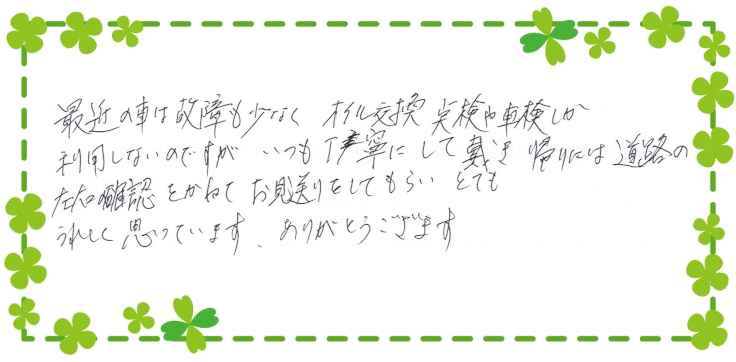 最近の車は故障も少なく オイル交換 点検や車検しか
利用しないのですが いつも丁寧にして戴き 帰りには道路の
左右確認をかねてお見送りをしてもらい とても
うれしく思っています、ありがとうございます